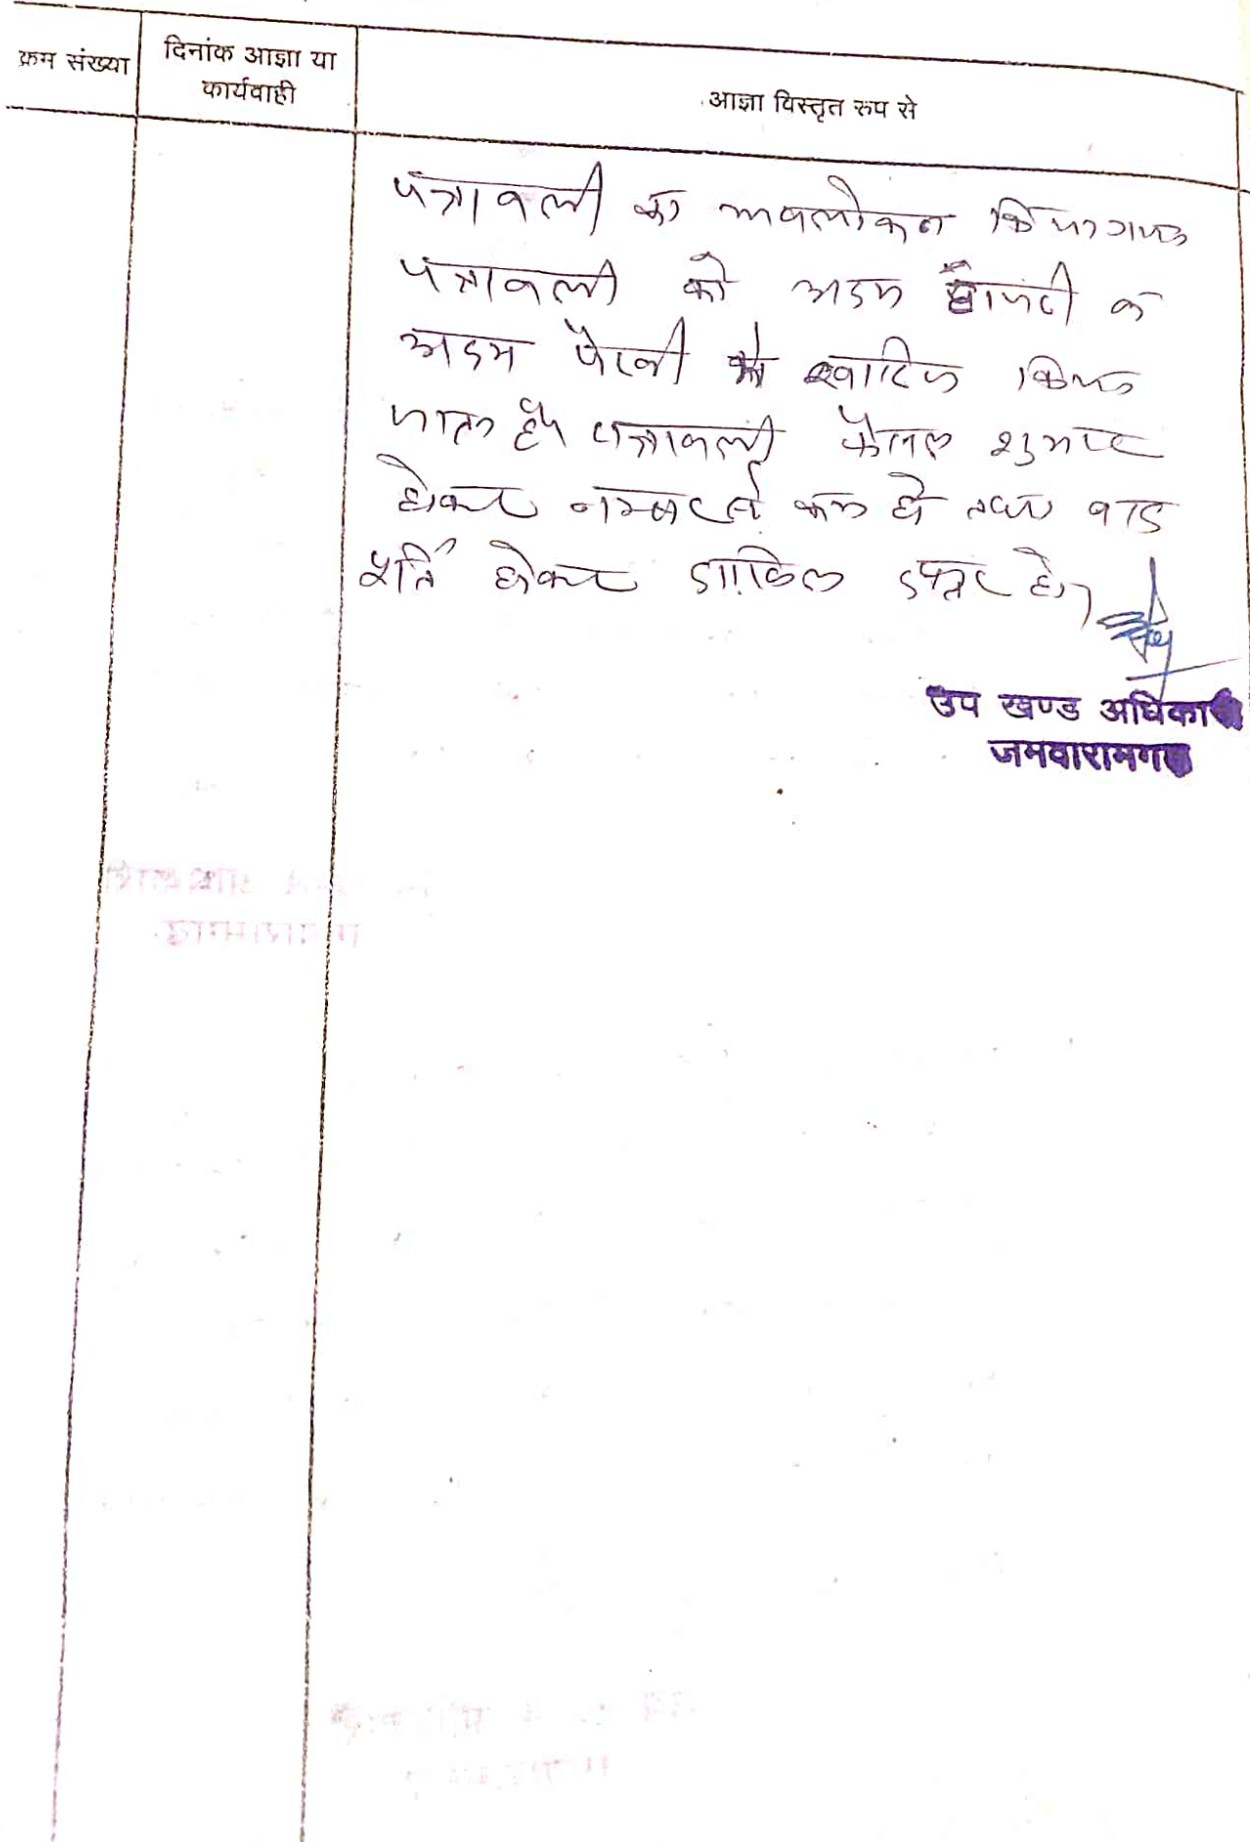 क्रम संख्या
दिनांक आज्ञा या
कार्यवाही
आज्ञा विस्तृत रुप से
पत्रावली का अवलोकन किया गया
पत्रावली को अदम हाजरी व
अदम पैरवी में खारिज किया
जाता है पत्रावली फैसल शुमार
होकर नम्बर से कम हो तथा बाद
पूर्ति होकर दाखिल दफ्तर हो।
उप खण्ड अधिकारी
जमवारामगढ